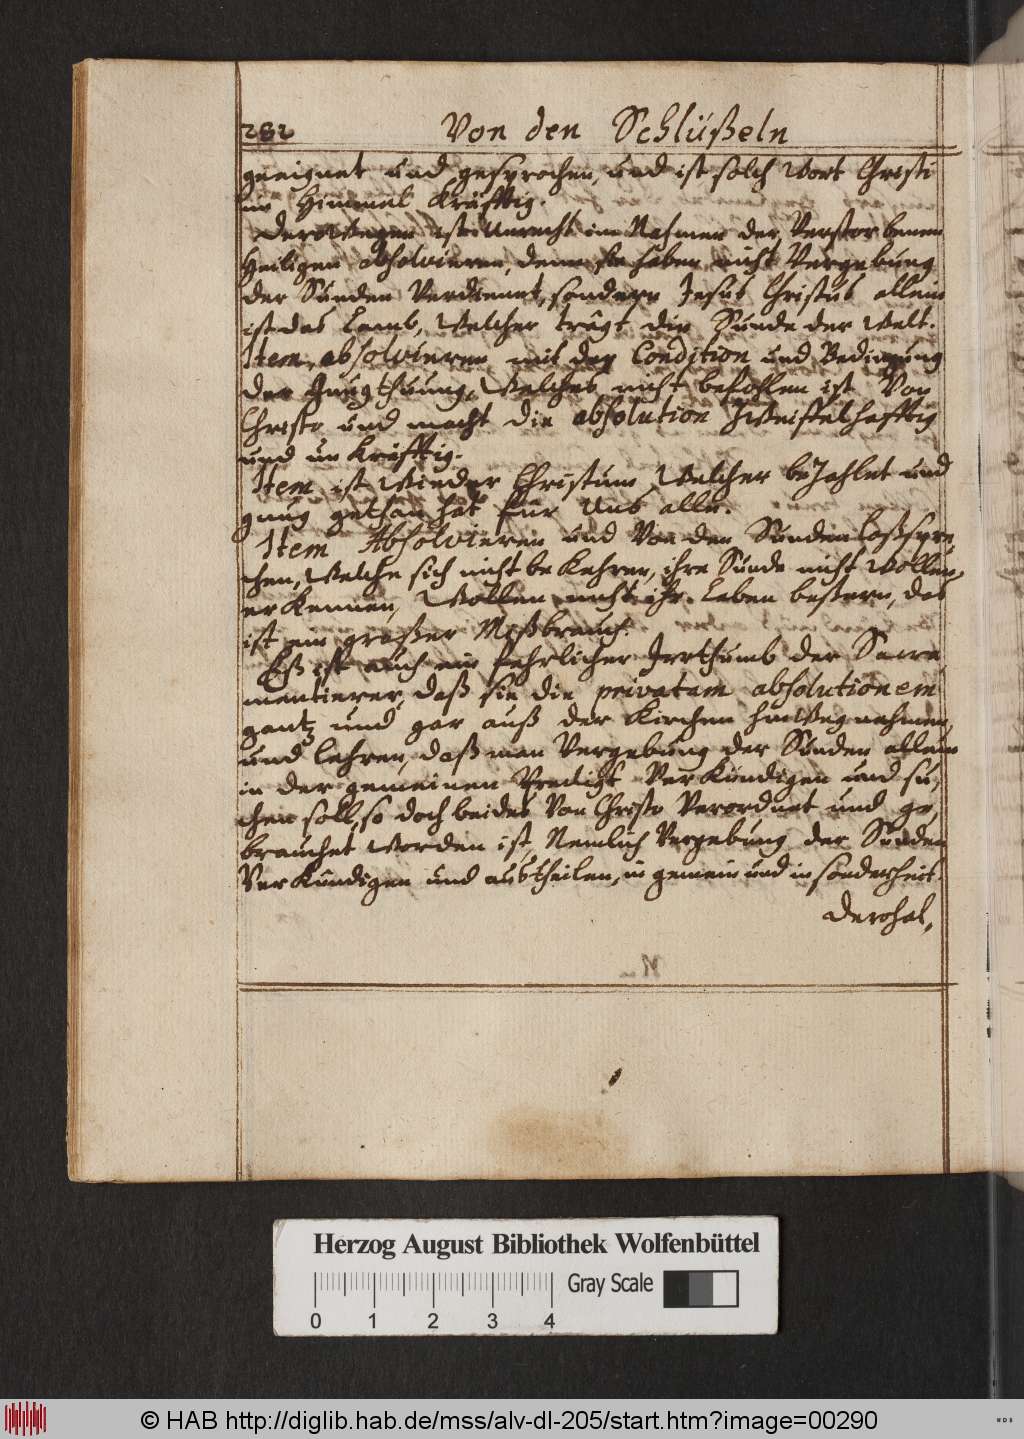 282
Von den Schlüßeln
geeignet und gesprochen, und ist solch Wort Christi
im Himmel kräfftig.
Derowegen ists unrecht im Nahmen der Verstorbenen
Heiligen absolvieren, denn sie haben nicht Vergebung
der Sünden Verdienet, sondern Jesus Christus allein
ist das Lamb, Welcher trägt die Sünde der Welt.
Item, absolvieren mit der Condition und Bedingung
der Gnugthuung, Welches nicht befohlen ist Von
Christo und macht die absolution Zweiffelhafftig
und unkräfftig.
Item ist Wieder Christum Welcher bezahlet und
gnug gethan hat für Uns alle.
Item Absolvieren und Von den Sünden loßspre,
chen, Welche sich nicht bekehren, ihre Sünde nicht Wollen
erkennen, Wollen nicht ihr Leben bessern, das
ist ein großer Mißbrauch.
Eß ist auch ein fehrlicher Irrthumb der Sacra,
mentierer, daß sie die privatam absolutionem
gantz und gar auß der Kirchen hinWegnehmen,
und lehren, daß man Vergebung der Sünden allein
in der gemeinen Predigt Verkündigen und su,
chen soll, so doch beides Von Christo Verordnet und ge,
brauchet Worden ist, Nemlich Vergebung der Sünden
Verkündigen und austheilen, in gemein und in sonderheit.
Derohal,
Herzog August Bibliothek Wolfenbüttel
Gray Scale
0 1 2 3 4
© HAB http://diglib.hab.de/mss/alv-dl-205/start.htm?image=00290